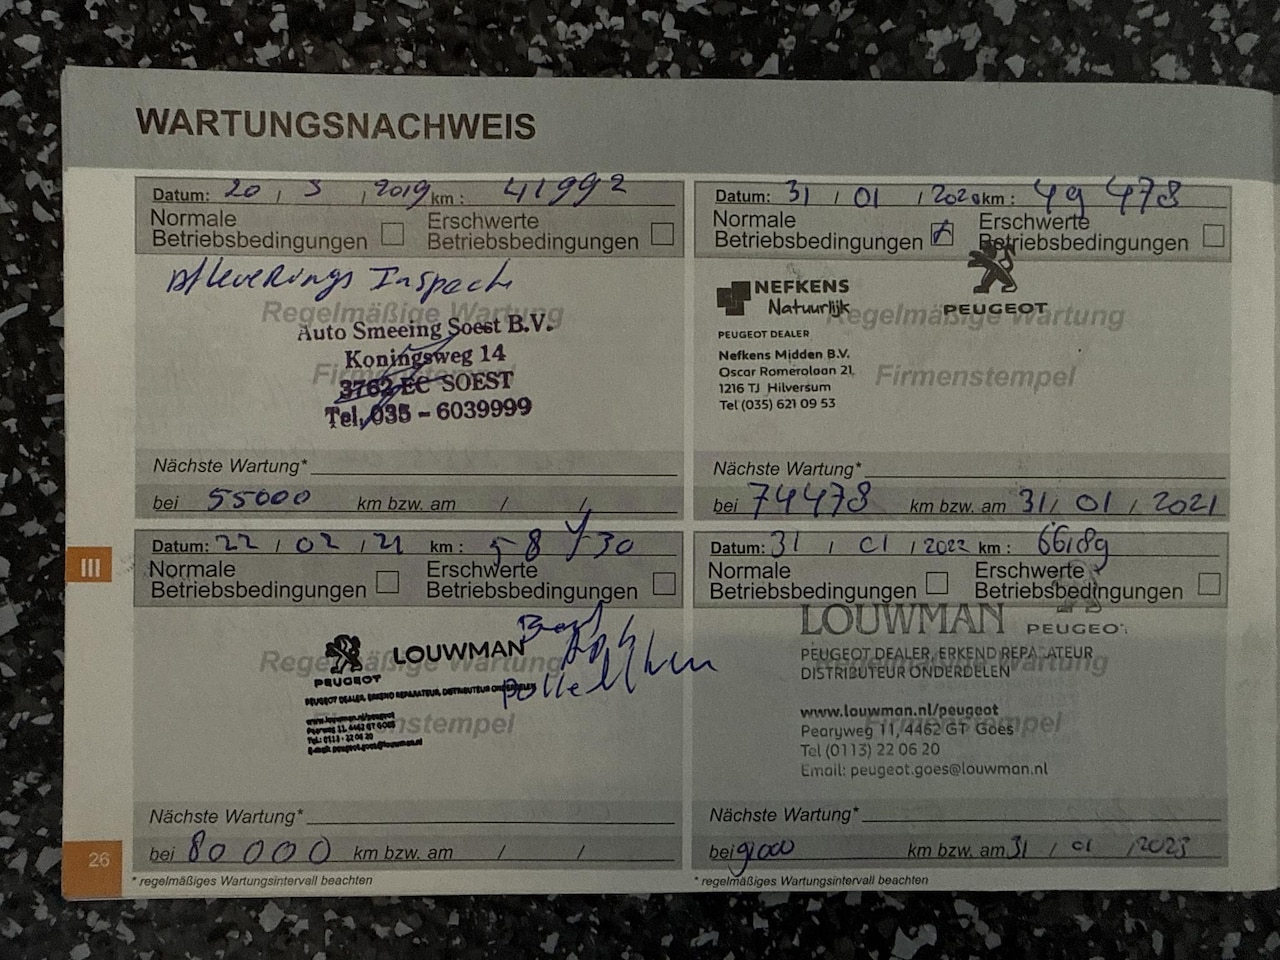 WARTUNGSNACHWEIS
Datum: 20 / 3 / 2019 km : 41992
Normale Betriebsbedingungen
Erschwerte Betriebsbedingungen
Afleverings Inspectie
Regelmäßige Wartung
Auto Smeeing Soest B.V.
Koningsweg 14
Firmenstempel
3762 EC SOEST
Tel. 035 - 6039999
Nächste Wartung*
bei 55000 km bzw. am / /
Datum: 31 / 01 / 2020 km : 49 478
Normale Betriebsbedingungen
Erschwerte Betriebsbedingungen
NEFKENS
Natuurlijk
PEUGEOT
Regelmäßige Wartung
PEUGEOT DEALER
Nefkens Midden B.V.
Oscar Romerolaan 21
Firmenstempel
1216 TJ Hilversum
Tel (035) 621 09 53
Nächste Wartung*
bei 74478 km bzw. am 31 / 01 / 2021
III
Datum: 22 / 02 / 21 km : 58 30
Normale Betriebsbedingungen
Erschwerte Betriebsbedingungen
LOUWMAN
Regelmäßige Wartung
PEUGEOT
PEUGEOT DEALER, ERKEND REPARATEUR, DISTRIBUTEUR ONDERDELEN
www.louwman.nl/peugeot
Firmenstempel
Pearyweg 11, 4462 GT Goes
Tel.: 0113 - 22 06 20
E-mail: peugeot.goes@louwman.nl
Nächste Wartung*
bei 80000 km bzw. am / /
Datum: 31 / 01 / 2022 km : 66189
Normale Betriebsbedingungen
Erschwerte Betriebsbedingungen
LOUWMAN
PEUGEOT
PEUGEOT DEALER, ERKEND REPARATEUR
Regelmäßige Wartung
DISTRIBUTEUR ONDERDELEN
www.louwman.nl/peugeot
Firmenstempel
Pearyweg 11, 4462 GT Goes
Tel (0113) 22 06 20
Email: peugeot.goes@louwman.nl
Nächste Wartung*
bei 91000 km bzw. am 31 / 01 / 2023
26
* regelmäßiges Wartungsintervall beachten
* regelmäßiges Wartungsintervall beachten